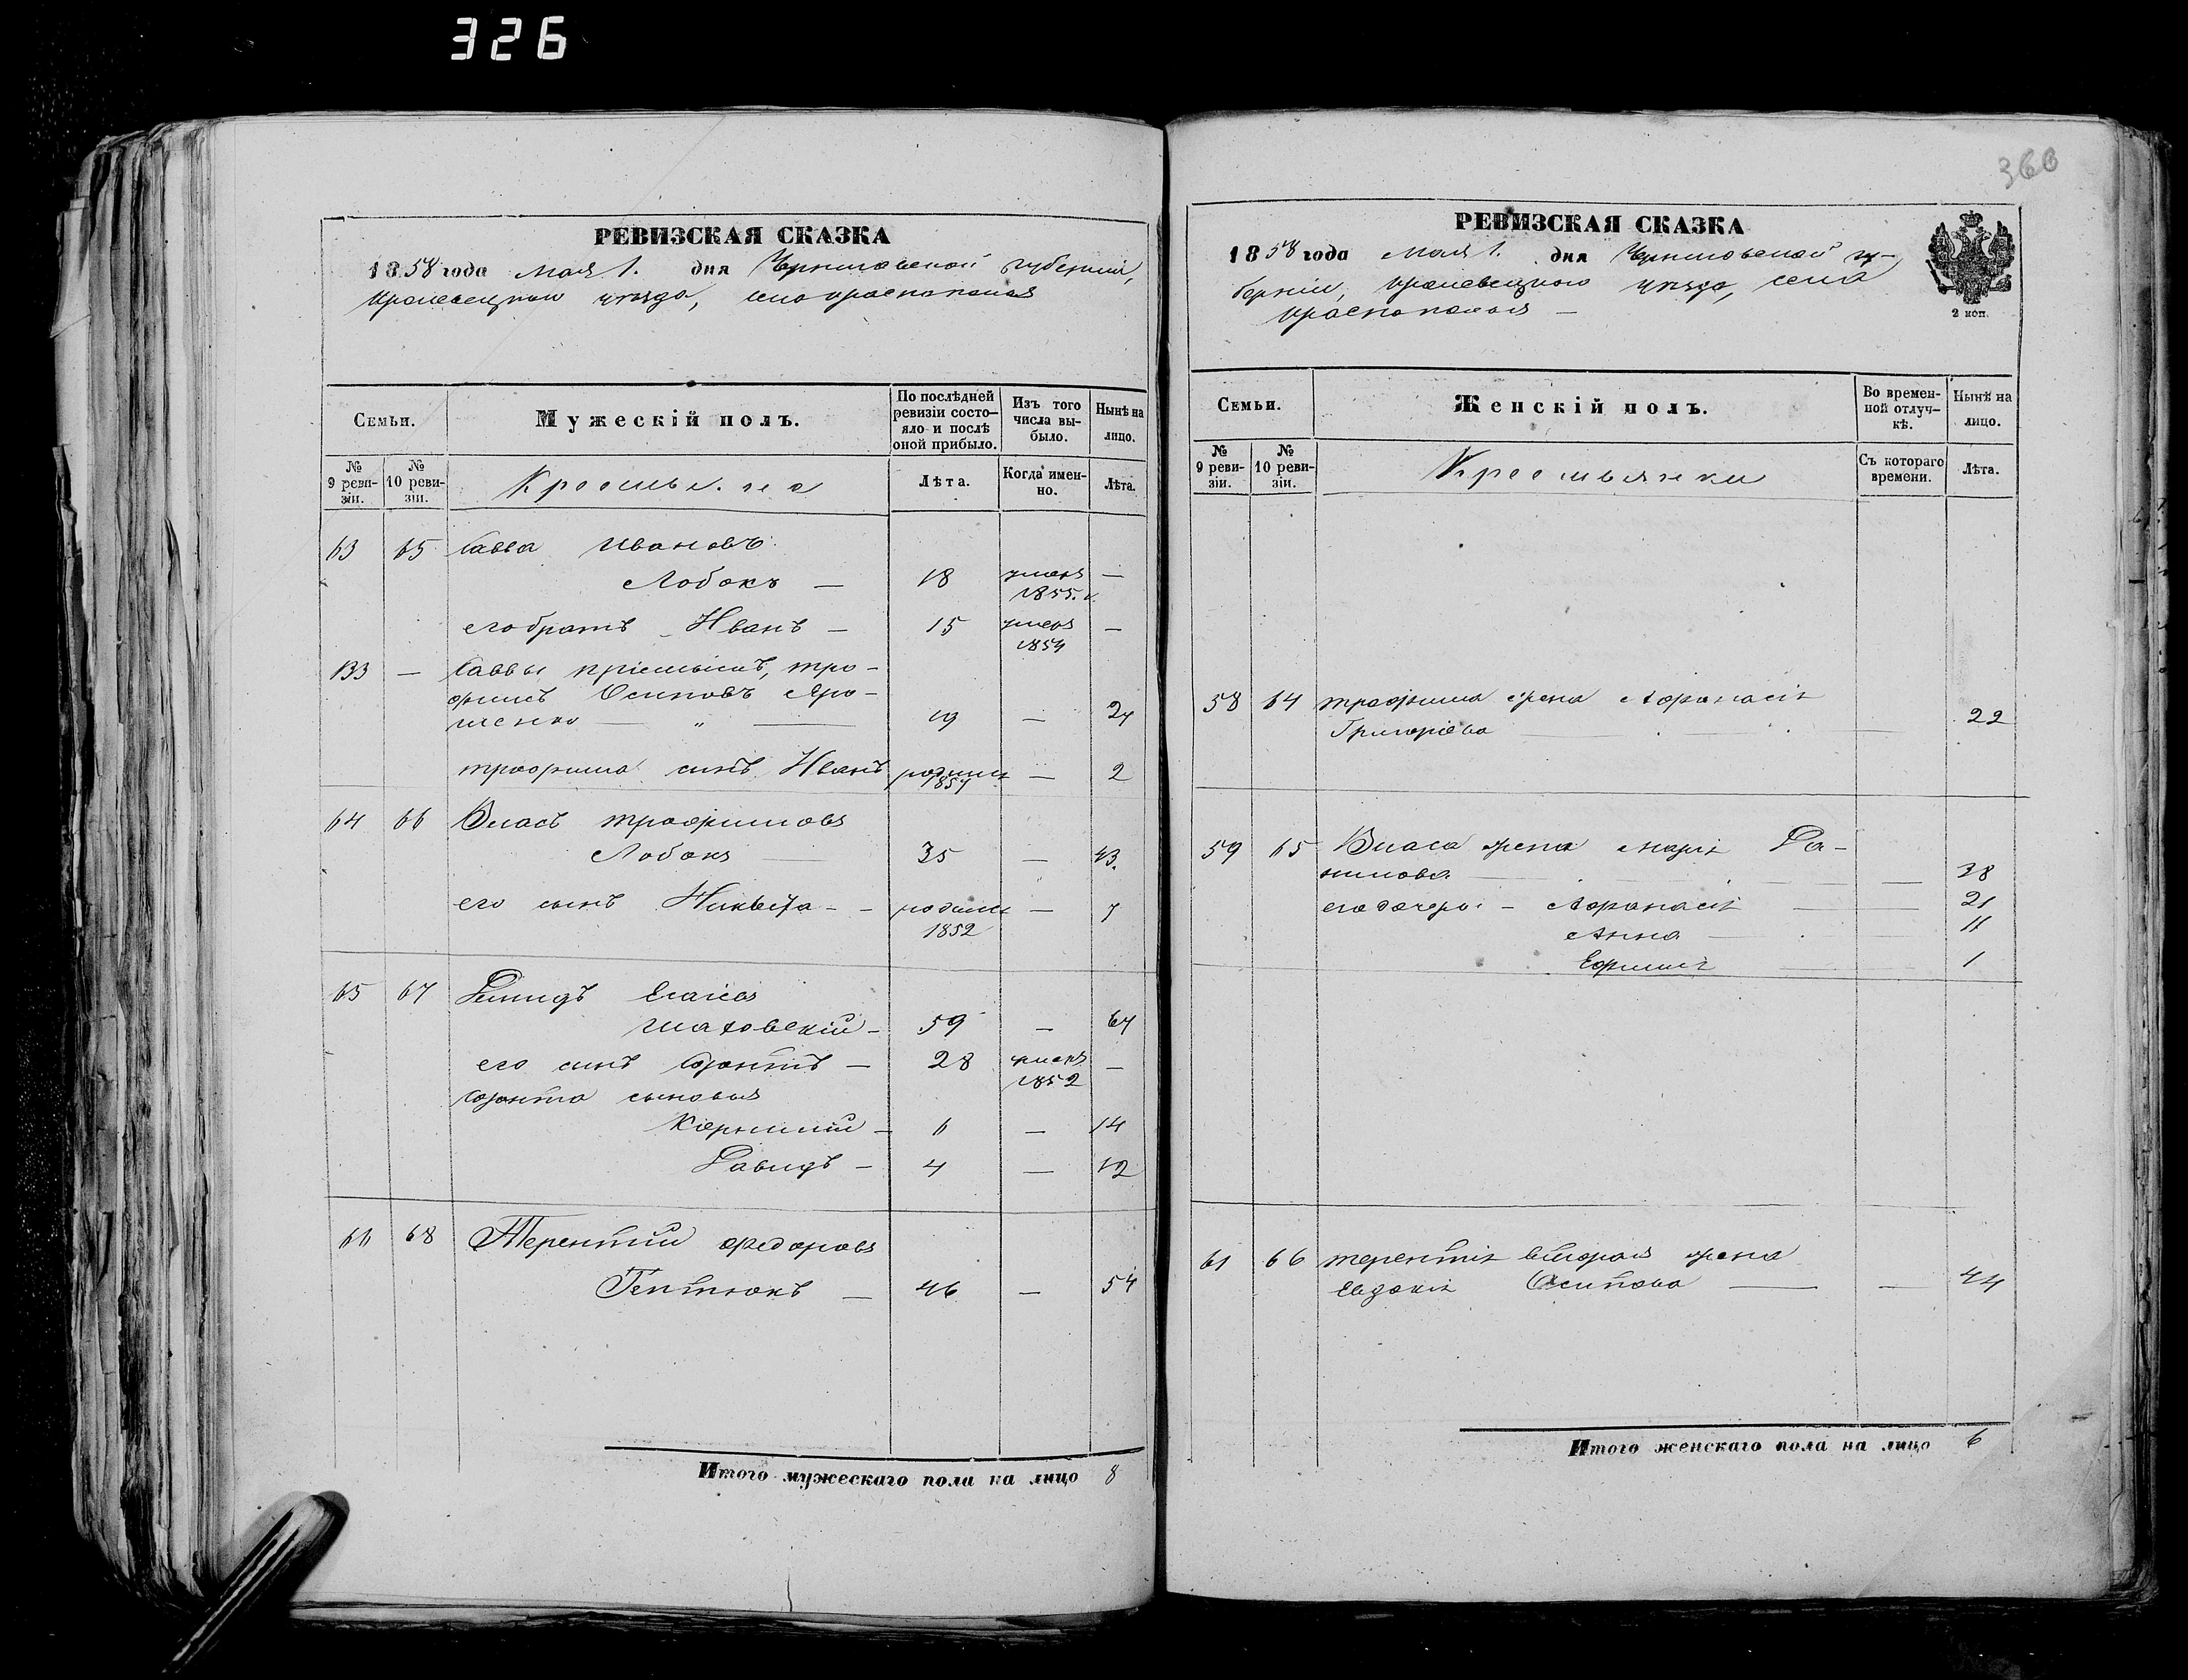 326
360
РЕВИЗСКАЯ СКАЗКА
1858 года Мая 1. дня Черниговской губерніи,
Кролевецкаго уѣзда, села Краснополья
Семьи.
Мужескій полъ.
По послѣдней ревизіи состо-
яло и послѣ
оной прибыло.
Изъ того
числа вы-
было.
Нынѣ на
лицо.
№
9 реви-
зіи.
№
10 реви-
зіи.
Крестьяне
Лѣта.
Когда имен-
но.
Лѣта.
63 65 Савва Ивановъ
Лобокъ — 18 умеръ —
1855.
его братъ Иванъ — 15 умеръ —
1854
133 — Саввы пріемышъ, Тро-
фимъ Осиповъ
— " — 19 — 27
Трофима сынъ Иванъ родился — 2
1857
64 66 Власъ Трофимовъ
Лобокъ 35 — 43.
его сынъ Никита - - родился — 7
1852
65 67 Демидъ
- 59 — 67
его сынъ — 28 умеръ —
1852
сыновья
Корнилій - 6 — 14
Давидъ - 4 — 12
66 68 Терентій Федоровъ
Гептюкъ — 46 — 54
Итого мужескаго пола на лицо 8
РЕВИЗСКАЯ СКАЗКА
1858 года Мая 1. дня Черниговской гу-
берніи, Кролевецкаго уѣзда, села
Краснополья —
2 коп.
Семьи.
Женскій полъ.
Во времен-
ной отлуч-
кѣ.
Нынѣ на
лицо.
№
9 реви-
зіи.
№
10 реви-
зіи.
Крестьянки
Съ котораго
времени.
Лѣта.
58 64 Трофима жена Афанасія
Григоріева — 22
59 65 Власа жена Марія Да-
нилова — — 38
его дочери - Афанасія — 21
Анна — 11
Ефимія — 1
61 66 Терентія вторая жена
Евдокія Осипова — — 44
Итого женскаго пола на лицо 6